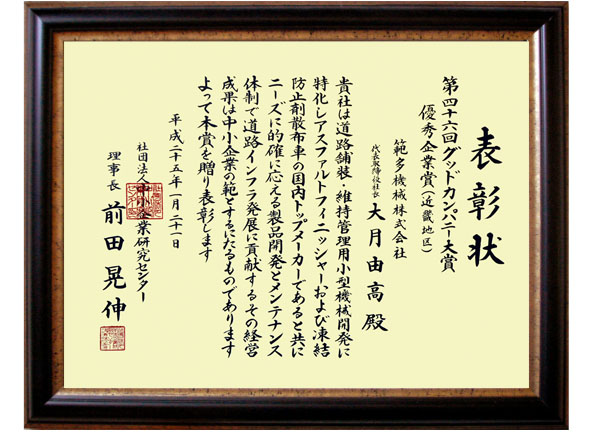 表彰状
第四十六回グッドカンパニー大賞
優秀企業賞(近畿地区)
範多機械株式会社
代表取締役社長 大月由高 殿
貴社は道路舗装・維持管理用小型機械開発に
特化しアスファルトフィニッシャーおよび凍結
防止剤散布車の国内トップメーカーであると共に
ニーズに的確に応える製品開発とメンテナンス
体制で道路インフラ発展に貢献するその経営
成果は中小企業の範とするにたるものであります
よって本賞を贈り表彰します
平成二十五年一月二十一日
社団法人中小企業研究センター
理事長 前田晃伸